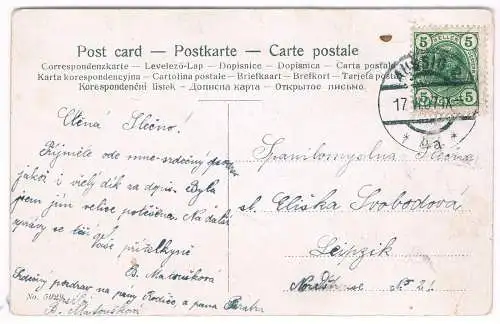 Post card — Postkarte — Carte postale
Correspondenzkarte — Levelező-Lap — Dopisnice — Dopisnica — Carta postala
Karta korespondencyjna — Cartolina postale — Briefkaart — Brefkort — Tarjeta postal
Korespondenční lístek — Дописна карта — Открытое письмо.
5 HELLER 5
5 5
AUSSIG
17
* 4a *
Ctěná Slečno!
Přijměte ode mne srdečný pozdrav
jakož i vřelý dík za dopis. Byla
jsem jím velice potěšena. Na další
zprávy se těší
Vaše přítelkyně
B. Matoušková
Srdečný pozdrav na pány Rodiče, a pana
No.
B. Matoušková
Slečna
sl. Eliška Svobodová
Leipzik
No 21